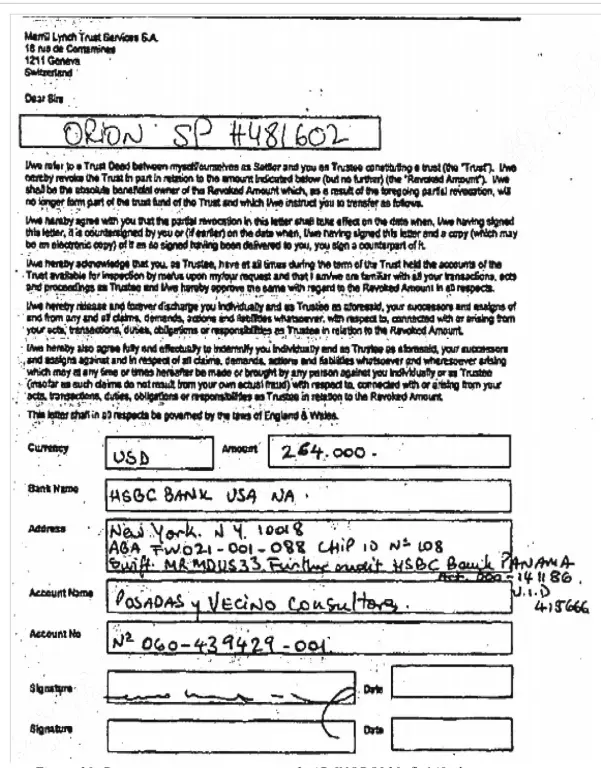 Merrill Lynch Trust Services S.A.
18 rue de Contamines
1211 Geneva
Switzerland
Dear Sirs
ORION SP #481602
I/we refer to a Trust Deed between myself/ourselves as Settlor and you as Trustee constituting a trust (the "Trust"). I/we
hereby revoke the Trust in part in relation to the amount indicated below (but no further) (the "Revoked Amount"). I/we
shall be the absolute beneficial owner of the Revoked Amount which, as a result of the foregoing partial revocation, will
no longer form part of the trust fund of the Trust and which I/we instruct you to transfer as follows.
I/we hereby agree with you that the partial revocation in this letter shall take effect on the date when, I/we having signed
this letter, it is countersigned by you or (if earlier) on the date when, I/we having signed this letter and a copy (which may
be an electronic copy) of it as so signed having been delivered to you, you sign a counterpart of it.
I/we hereby acknowledge that you, as Trustee, have at all times during the term of the Trust held the accounts of the
Trust available for inspection by me/us upon my/our request and that I am/we are familiar with all your transactions, acts
and proceedings as Trustee and I/we hereby approve the same with regard to the Revoked Amount in all respects.
I/we hereby release and forever discharge you individually and as Trustee as aforesaid, your successors and assigns of
and from any and all claims, demands, actions and liabilities whatsoever, with respect to, connected with or arising from
your acts, transactions, duties, obligations or responsibilities as Trustee in relation to the Revoked Amount.
I/we hereby also agree fully and effectually to indemnify you individually and as Trustee as aforesaid, your successors
and assigns against and in respect of all claims, demands, actions and liabilities whatsoever and wheresoever arising
which may at any time or times hereafter be made or brought by any person against you individually or as Trustee
(insofar as such claims do not result from your own actual fraud) with respect to, connected with or arising from your
acts, transactions, duties, obligations or responsibilities as Trustee in relation to the Revoked Amount.
This letter shall in all respects be governed by the laws of England & Wales.
Currency USD Amount 264.000.-
Bank Name HSBC BANK USA NA.
Address New York. N Y. 10018
ABA FW021-001-088 CHIP ID Nº 108
Swift. MRMDUS33 Further credit HSBC Bank PANAMA
Act. 000-141186.
U.I.D
415666
Account Name POSADAS y VECINO Consultores.
Account No Nº 060-439429-001.
Signature Date
Signature Date